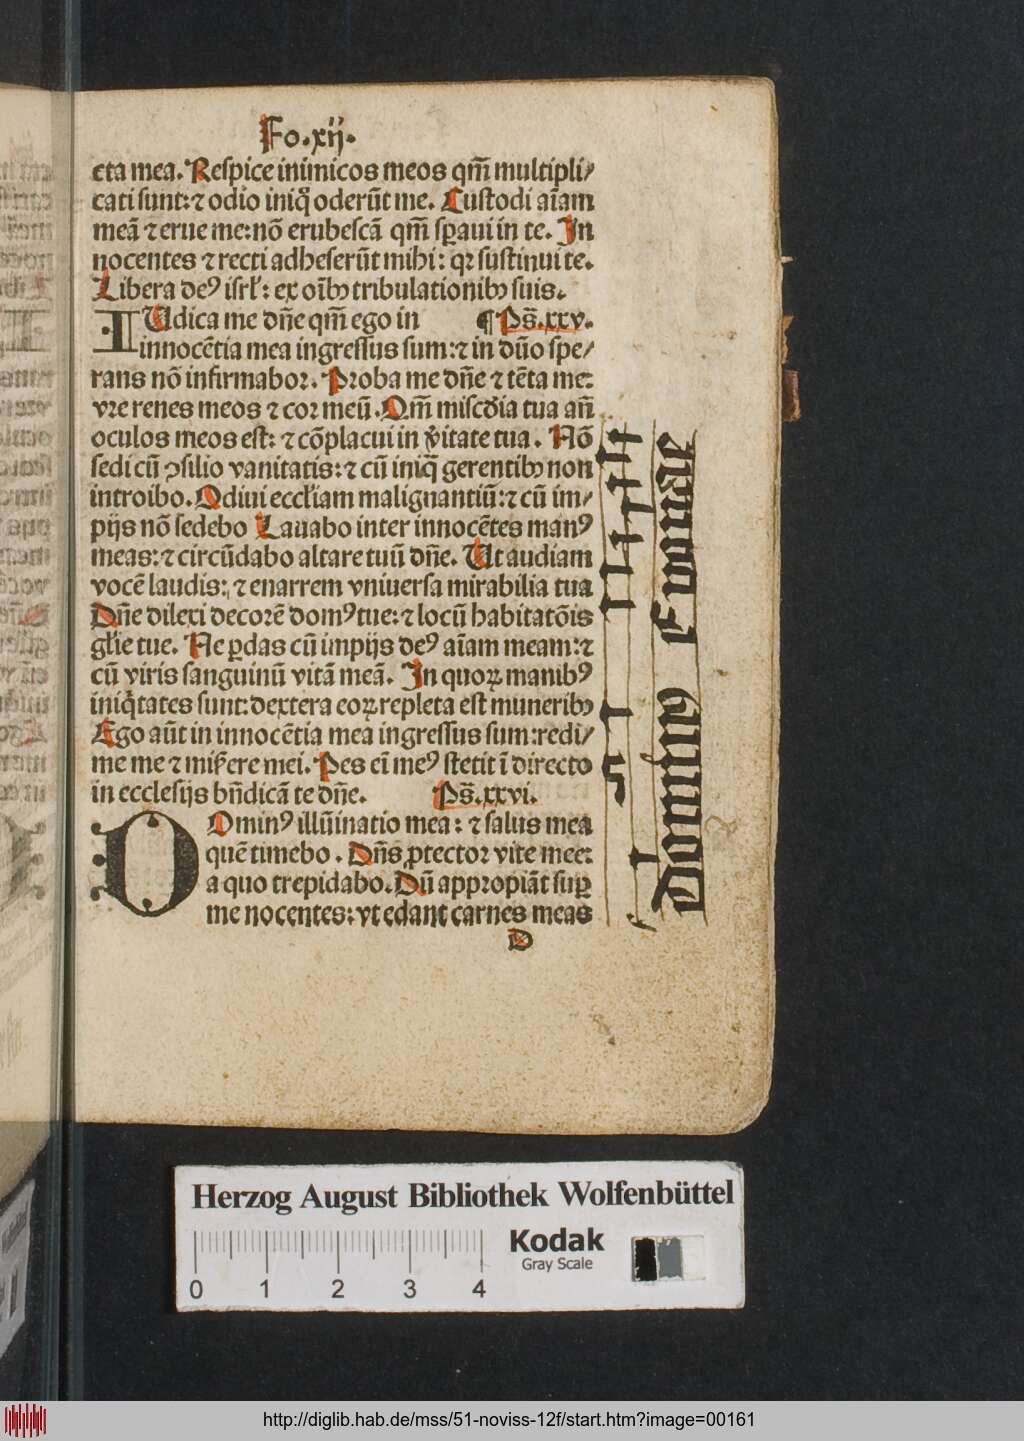 Fo.xij.
cta mea. Respice inimicos meos qm̄ multipli/
cati sunt: ⁊ odio iniqͦ oderūt me. Custodi aīam
meā ⁊ erue me: nō erubescā qm̄ sꝑaui in te. In
nocentes ⁊ recti adheserūt mihi: qꝛ sustinui te.
Libera deꝰ isrl̓: ex oībꝫ tribulationibꝫ suis.
IUdica me dn̄e qm̄ ego in ¶ Ps̄.xxv.
innocētia mea ingressus sum: ⁊ in dn̄o spe/
rans nō infirmabor. Proba me dn̄e ⁊ tēta me:
vre renes meos ⁊ cor meū. Qm̄ misc̄dia tua an̄
oculos meos est: ⁊ cōplacui in v̓itate tua. Nō
sedi cū ꝯsilio vanitatis: ⁊ cū iniq̄ gerentibꝫ non
introibo. Odiui eccl̓iam malignantiū: ⁊ cū im/
pijs nō sedebo Lauabo inter innocētes manꝰ
meas: ⁊ circūdabo altare tuū dn̄e. Ut audiam
vocē laudis: ⁊ enarrem vniuersa mirabilia tua
Dn̄e dilexi decorē domꝰ tue: ⁊ locū habitatōis
gl̓ie tue. Ne ꝑdas cū impijs deꝰ aīam meam: ⁊
cū viris sanguinū vitā meā. In quoꝝ manibꝰ
iniq̇tates sunt: dextera eoꝝ repleta est muneribꝫ
Ego aūt in innocētia mea ingressus sum: redi/
me me ⁊ mis̓ere mei. Pes eī meꝰ stetit ī directo
in ecclesijs bn̄dicā te dn̄e. Ps̄.xxvi.
DOminꝰ illūinatio mea: ⁊ salus mea
quē timebo. Dn̄s ꝓtector vite mee:
a quo trepidabo. Dū appropiāt suꝑ
me nocentes: vt edant carnes meas
D
Herzog August Bibliothek Wolfenbüttel
Kodak
Gray Scale
0 1 2 3 4
http://diglib.hab.de/mss/51-noviss-12f/start.htm?image=00161